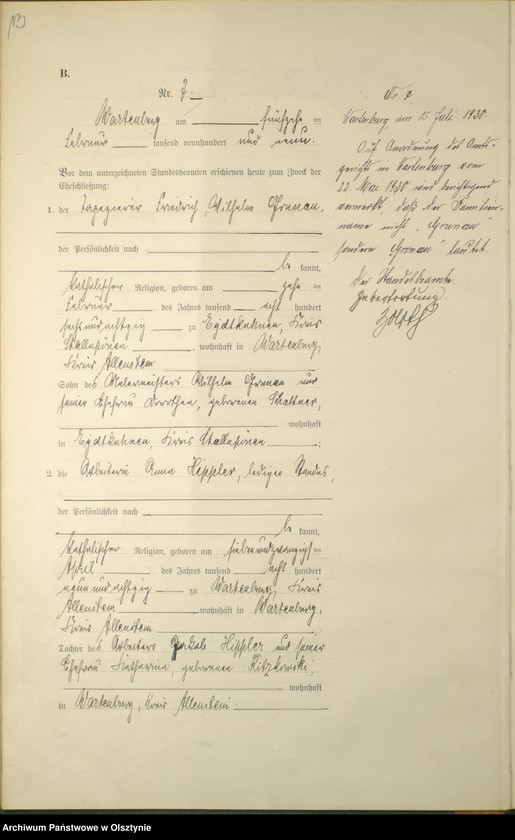 B.
Nr. 7
Wartenburg am fünfzehn ten
Februar tausend neunhundert und neun.
Vor dem unterzeichneten Standesbeamten erschienen heute zum Zweck der
Eheschließung:
1. der Tapezierer Friedrich, Wilhelm Grunau,
der Persönlichkeit nach
be kannt,
katholischer Religion, geboren am zehn ten
Februar des Jahres tausend acht hundert
sechsundachtzig zu Eydtkuhnen, Kreis
Stallupönen, wohnhaft in Wartenburg,
Kreis Allenstein
Sohn des Malermeisters Wilhelm Grunau und
seiner Ehefrau Dorothea, geborenen
wohnhaft
in Eydtkuhnen, Kreis Stallupönen ;
2. die Arbeiterin Anna Hippler, ledigen Standes,
der Persönlichkeit nach
be kannt,
katholischer Religion, geboren am siebenundzwanzigs ten
April des Jahres tausend acht hundert
neunundachtzig zu Wartenburg, Kreis
Allenstein, wohnhaft in Wartenburg,
Kreis Allenstein
Tochter des Arbeiters Jakob Hippler und seiner
Ehefrau Katharina, geborenen Ritzkowski,
wohnhaft
in Wartenburg, Kreis Allenstein.
No. 7
Wartenburg, den 15 Juli 1930.
Auf Anordnung des Amts-
gerichts in Wartenburg vom
22. Mai 1930 wird berichtigend
vermerkt, daß der Familien-
name nicht „Grunau“
sondern „Gronau“ lautet.
Der Standesbeamte
Archiwum Państwowe w Olsztynie
szukajwarchiwach.gov.pl